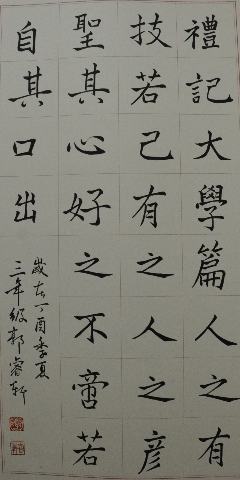 禮記大學篇人之有
技若己有之人之彥
聖其心好之不啻若
自其口出
歲在丁酉季夏
三年級郭睿軒